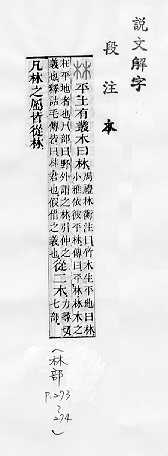 說文解字
段注本
林 平土有叢木曰林
周禮林衡注曰竹木生平地曰林
小雅依彼平林傳曰平林林木之
在平地者也冂部曰野外謂之林引伸之
義也釋詁毛傳皆曰林君也假借之義也
從二木
力尋切
七部
凡林之屬皆從林
(林部
P.273
~
274
)